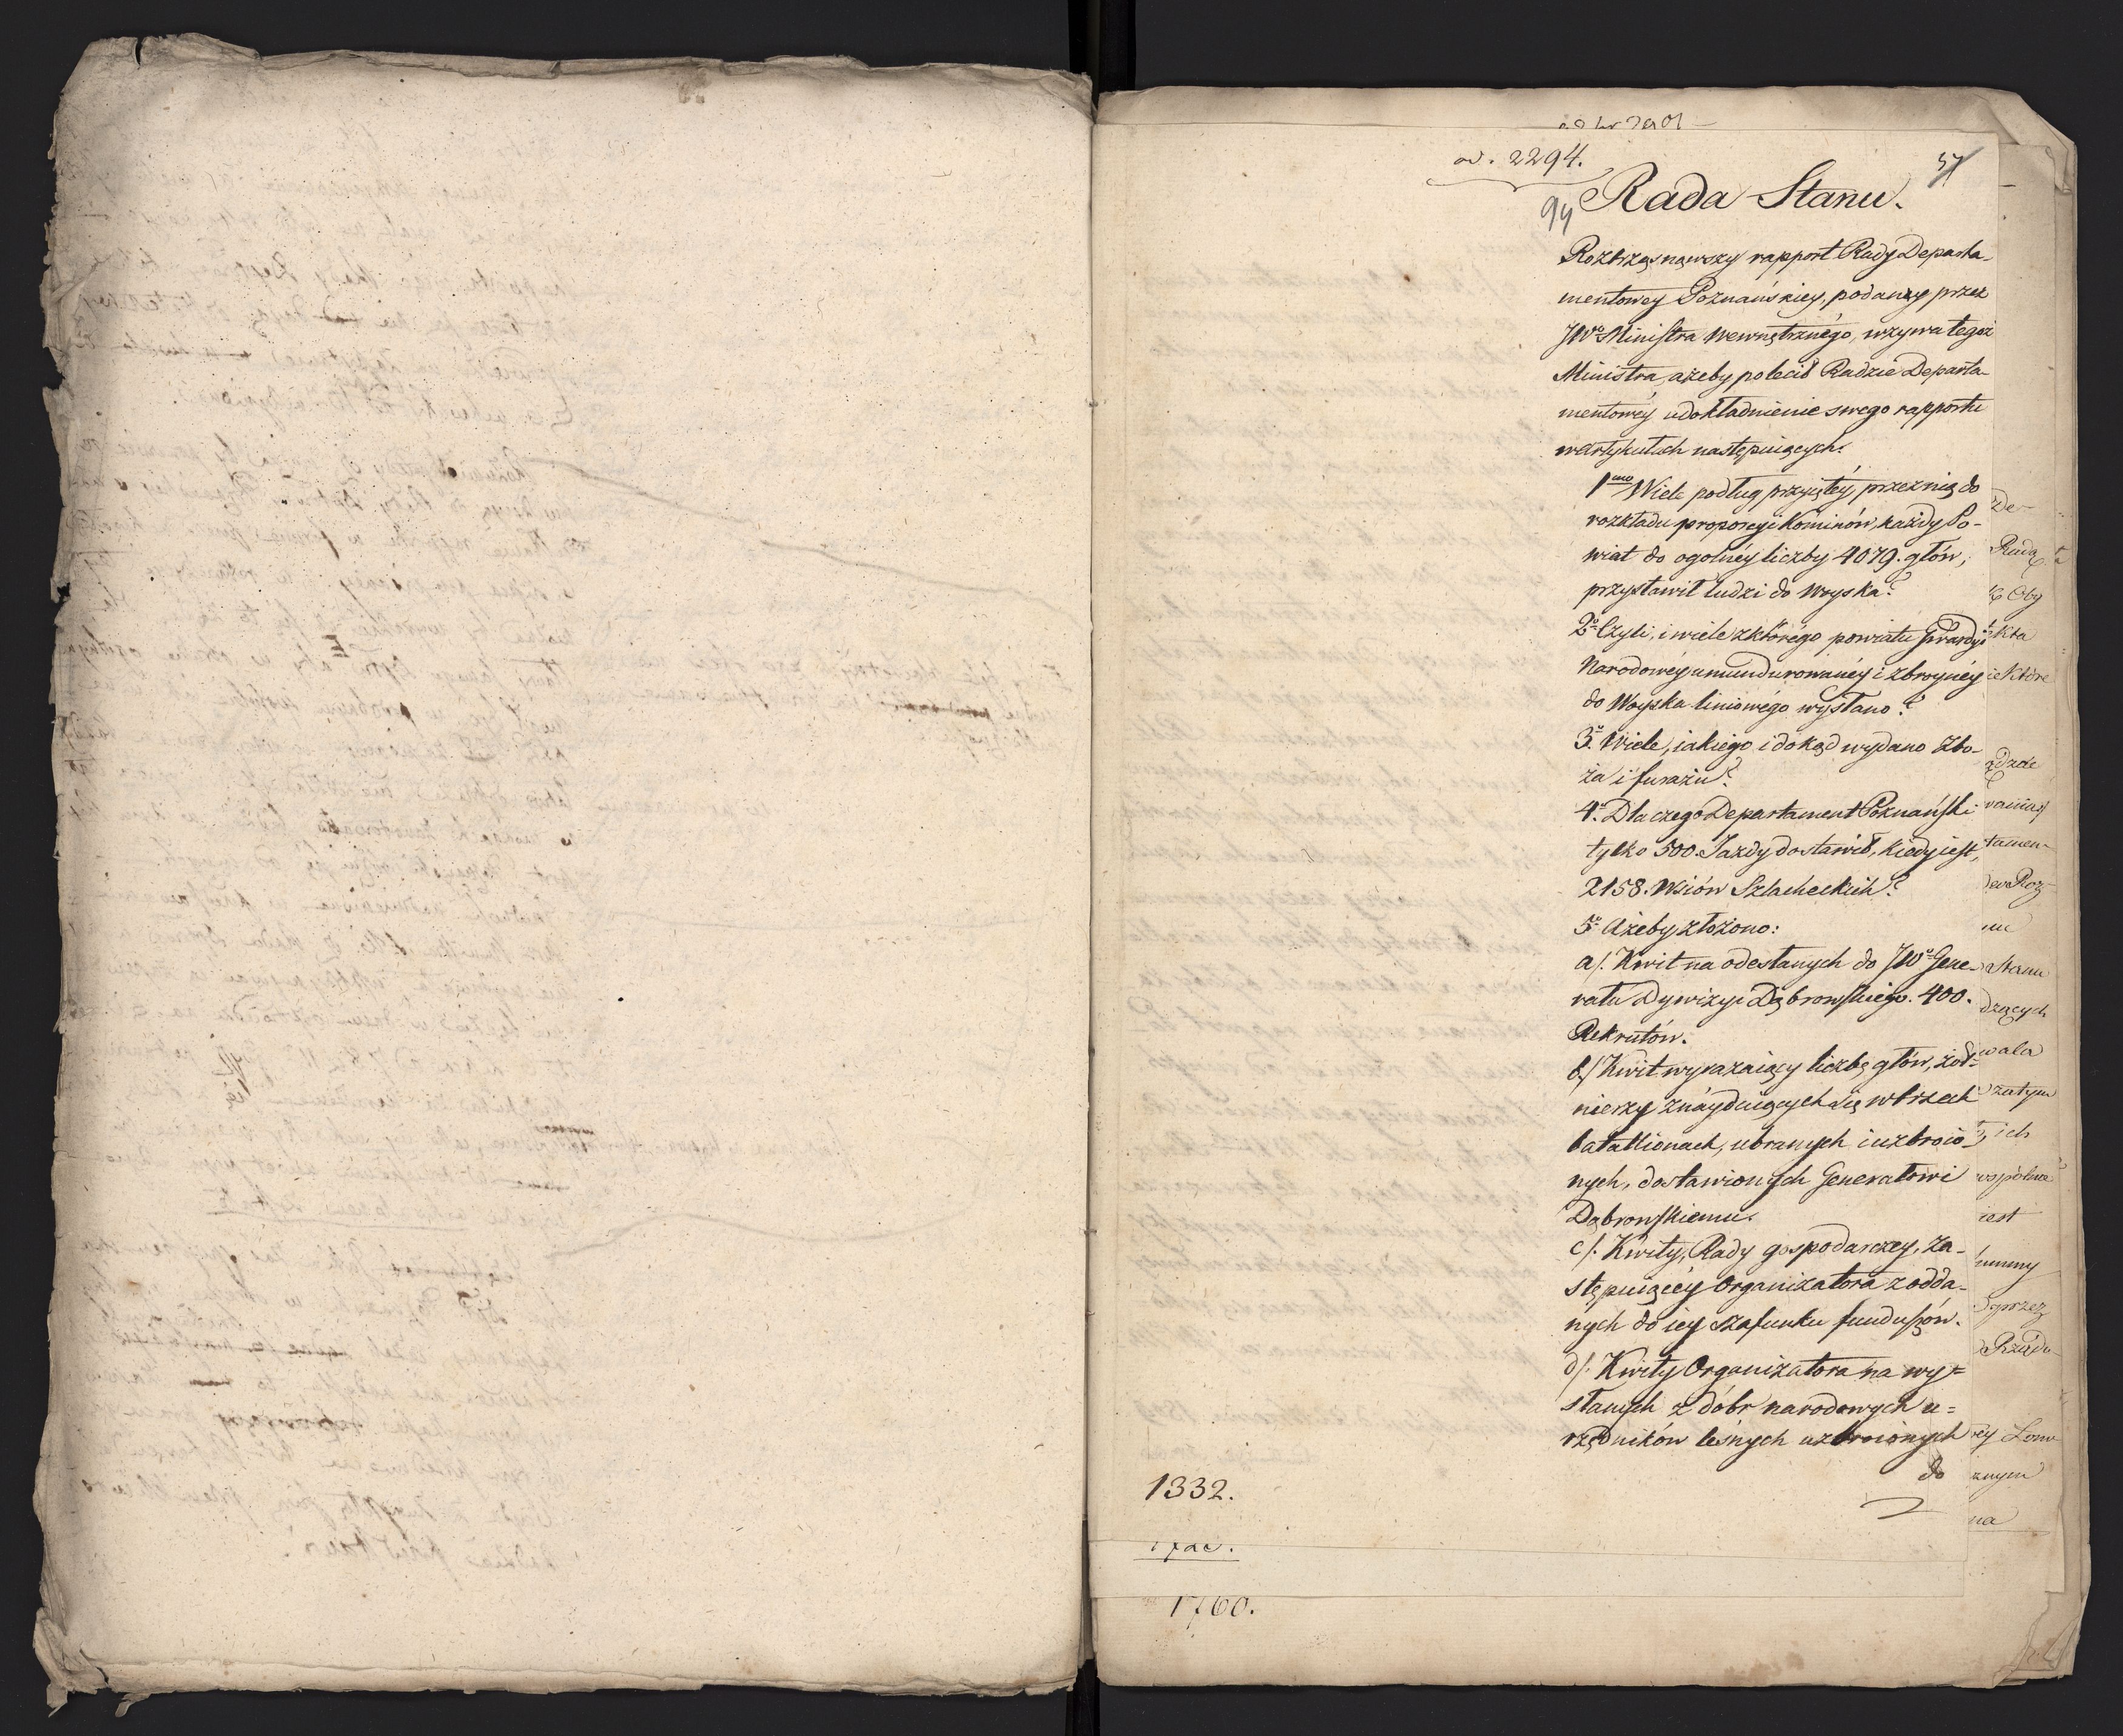 ad. 2294.
57
94
Rada Stanu.
Roztrząsnąwszy rapport Rady Departa-
mentowey Poznańskiey, podany przez
JWo Ministra Wewnętrznégo, wzywa tegoż
Ministra, ażeby polecił Radzie Departa-
mentowéy udokładnienie swego rapportu
w artykułach następuiących.
1mo Wiele podług przyiętéy przez nią do
rozkładu proporcyi Kominów, każdy Po-
wiat do ogolnéy liczby 4079. głów,
przystawił ludzi do Woyska?
2o Czyli, i wiele z którégo powiatu Gwardyi
Narodowéy umundurowanéy i zbroynéy
do Woyska liniowégo wysłano?
3o Wiele, iakiego i dokąd wydano Zbo-
ża i furażu?
4o Dla czego Departament Poznański
tylko 500. Jazdy dostawił, kiedy iest,
2158. Wsiów Szlacheckich?
5o Ażeby złożono:
a/. Kwit na odesłanych do JWo Gene-
rała Dywizyi Dąbrowskiégo. 400.
Rekrutów.
b/ Kwit wyrażaiący liczbę głów, żoł-
nierzy znayduiących się w trzech
batallionach, ubranych i uzbroio-
nych, dostawionych Generałowi
Dąbrowskiemu.
c/. Kwity, Rady gospodarczey, Za-
stępuiącéy Organizatora z odda-
nych do iey szafunku funduszów.
d/. Kwity Organizatora na wy-
słanych z dóbr narodowych u-
rzędników leśnych uzbroionych
do
1332.
1760.
Rada
Oby
które
tamen-
Stanu
dzących
wala
zatym
ich
wspólna
iest
summy
przez
Rządu
znym
na